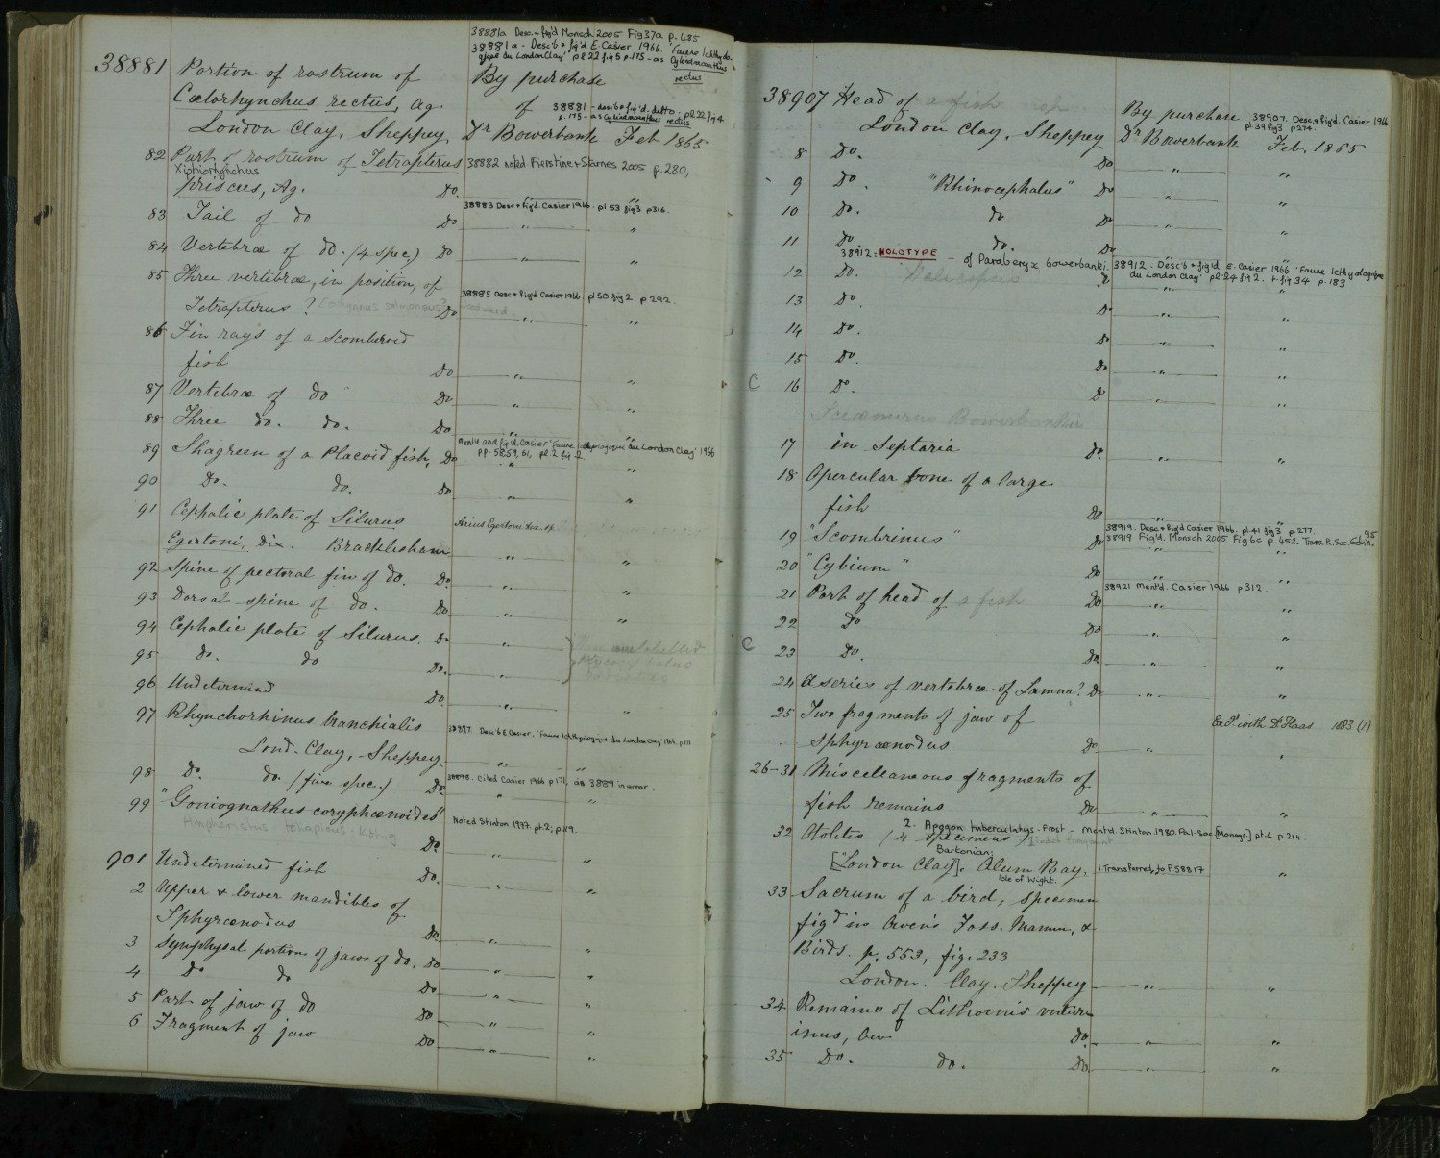 38881a Desc. + fig'd Monsch 2005 Fig 37a p. 685
38881a - Desc'b + fig'd E. Casier 1966. 'Faune Ichthyolo-
gique du London Clay' pl 22 fig 5 p. 175 - as Cylindracanthus
rectus
38881 Portion of rostrum of By purchase
Cœlorhynchus rectus, Ag. of 38881 - desc'b + fig'd. ditto. pl. 22 fig 4
p. 175 - as Cylindracanthus rectus
London Clay, Sheppey Dr Bowerbank Feb 1865
82 Part of rostrum of Tetrapterus 38882 noted Fierstine + Starnes 2005 p. 280,
Xiphiorhynchus
priscus, Ag. Do. " "
38883 Desc + fig'd. Casier 1966. pl 53 fig 3 p 316.
83 Tail of do Do " "
84 Vertebræ of do. (4 spec.) Do " "
85 Three vertebræ, in position, of
38885 Desc + fig'd Casier 1966 pl 50 fig 2 p 292.
Tetrapterus ? Do " "
86 Fin rays of a Scomberoid
fish Do " "
87 Vertebræ of do Do " "
88 Three do. do. Do " "
Ment'd and fig'd. Casier 'Faune Ichthyologique du London Clay' 1966
pp. 58, 59, 61, pl. 2 fig 2
89 Shagreen of a Placoid fish, Do " "
90 Do. do. Do " "
91 Cephalic plate of Silurus
Arius Egertoni
Egertoni, Dix. Bracklesham " "
92 Spine of pectoral fin of do. Do. " "
93 Dorsal spine of do. Do " "
94 Cephalic plate of Silurus. Do "
95 do. do Do. "
96 Undetermined Do. " "
97 Rhynchorhinus branchialis
38897. Desc'b E. Casier. 'Faune Ichthyologique du London Clay'
Lond. Clay, Sheppey. " "
98 Do. do. (five spec.) Do. 38898. Cited Casier 1966 p 171, as 3889 in error.
" "
99 "Goniognathus coryphænoides" Noted Stinton 1977. pt. 2; p. 119.
Ampheristus toliapicus. König
Do. " "
901 Undetermined fish Do. " "
2 Upper & lower mandibles of
Sphyrænodus Do. " "
3 Symphysal portions of jaws of do. Do " "
4 Do do Do " "
5 Part of jaw of do Do " "
6 Fragment of jaw Do " "
38907 Head of a fish By purchase 38907. Desc. + fig'd. Casier 1966
pl 39 fig 3 p 274.
London Clay, Sheppey Dr Bowerbank Feb. 1865
8 Do. Do " "
9 Do. "Rhinocephalus" Do " "
10 Do. do Do " "
11 Do do. Do " "
38912: HOLOTYPE - of Paraberyx bowerbanki. 38912. Desc'b + fig'd E. Casier 1966 'Faune Ichthyologique
du London Clay' pl. 24 fig 2. t. fig 34 p. 183
12 Do. Do " "
13 Do. Do " "
14 Do. Do " "
15 Do. Do " "
C 16 Do. Do " "
Bowerbankii
17 in Septaria Do. " "
18 Opercular bone of a large
fish Do " "
38919. Desc + fig'd Casier 1966. pl 41 fig 3 p 277.
38919 Fig'd. Monsch 2005 Fig 6c p. 453. Trans. R. Soc. Edin. 95
19 "Scombrinus" Do " "
20 "Cybium" Do " "
38921 Ment'd. Casier 1966 p 312.
21 Part of head of a fish Do " "
22 Do Do " "
C 23 Do. Do " "
24 A series of vertebræ of Lamna? Do " "
25 Two fragments of jaw of Exd with Dr Haas 1883 (1)
Sphyrænodus Do " "
26-31 Miscellaneous fragments of
fish remains Do " "
2. Apogon tuberculatus - Frost - Mentd. Stinton 1980. Pal. Soc. [Monogr.] pt. 4 p 214
32 Otolites (4 specimens)
Bartonian
["London Clay]. Alum Bay. 1 Transferred to P58817 "
Isle of Wight.
33 Sacrum of a bird, specimen
figd in Owen's Foss. Mamm. &
Birds. p. 553, fig. 233
London. Clay. Sheppey " "
34 Remains of Lithornis vultur-
inus, Ow Do " "
35 Do. do. Do " "